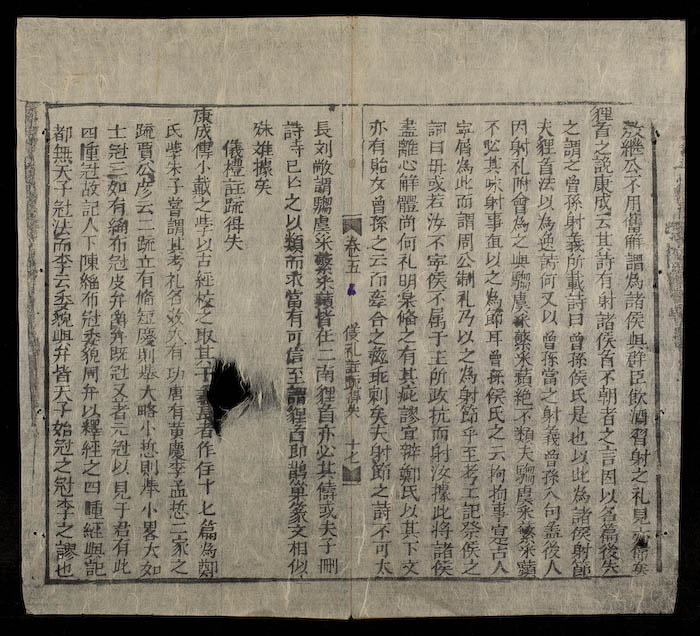 敖繼公不用舊解謂為諸侯與群臣飲酒習射之礼見
狸首之說康成云其詩有射諸侯首不朝者之言因以名篇後失
之謂之曾孫射義所載詩曰曾孫侯氏是也以此為諸侯射節
夫狸首法以為逸詩何又以曾孫當之射義曾孫八句盖後人
因射礼附會為之與騶虞采蘩采蘋絶不類夫騶虞采蘩采蘋
不必其咏射事直以之為節耳曾孫侯氏之云拘拘事寔古人
寧屑為此而謂周公制礼乃以之為射節乎至考工記祭侯之
詞曰毋或若汝不寧侯不属于王所政抗而射汝據此將諸侯
盡離心解體尚何礼明樂備之有其疵謬宜辯鄭氏以其下文
亦有貽女曾孫之云而牽合之盭乖剌矣夫射節之詩不可太
卷五
儀礼註疏得失 十七
長刘敞謂騶虞采蘩采蘋皆在二南狸首亦必其儔或夫子刪
詩時已亡之以類而求當有可信至謂狸首即鵲巢篆文相似
殊難據矣
儀禮註疏得失
康成傳小戴之學以古經校之取其者作在十七篇為鄭
氏學朱子嘗謂其考礼名数大有功唐有黃慶李孟悊二家之
疏賈公彥云二疏立有脩短慶則舉大略小悊則舉小畧大如
士冠三加有緇布冠皮弁爵弁既冠又著元冠以見于君有此
四種冠故記人下陳緇布冠委貌周弁以釋經之四種經與記
都無天子冠法而李云委貌與弁皆天子始冠之冠李之謬也